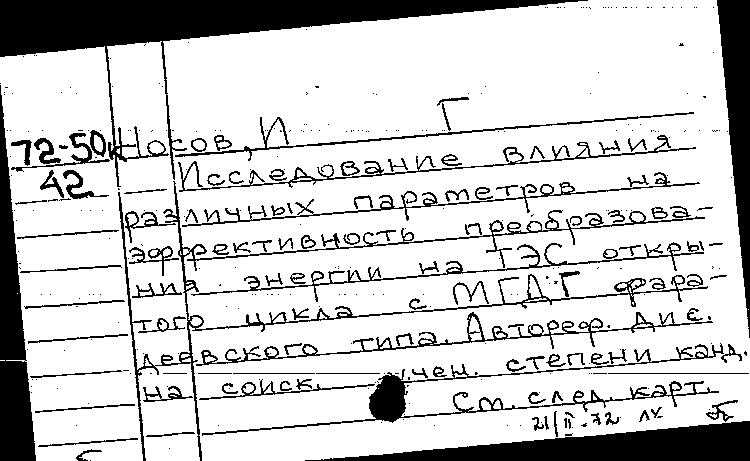 72-50к Носов, И Г
42 Исследование влияния
различных параметров на
эффективность преобразова-
ния энергии на ТЭС откры-
того цикла с МГДГ фара-
деевского типа. Автореф. дис.
на соиск. учен. степени канд.
См. след. карт.
21/II-72 лк